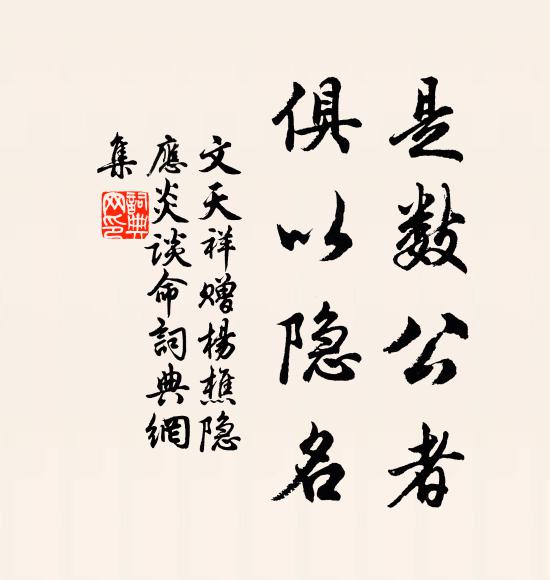 是数公者
俱以隐名
文天祥赠杨樵隐
應炎谈命詞典網
集
詞典網印